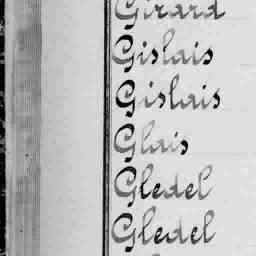 Girard
Gislais
Gislais
Glais
Gledel
Gledel